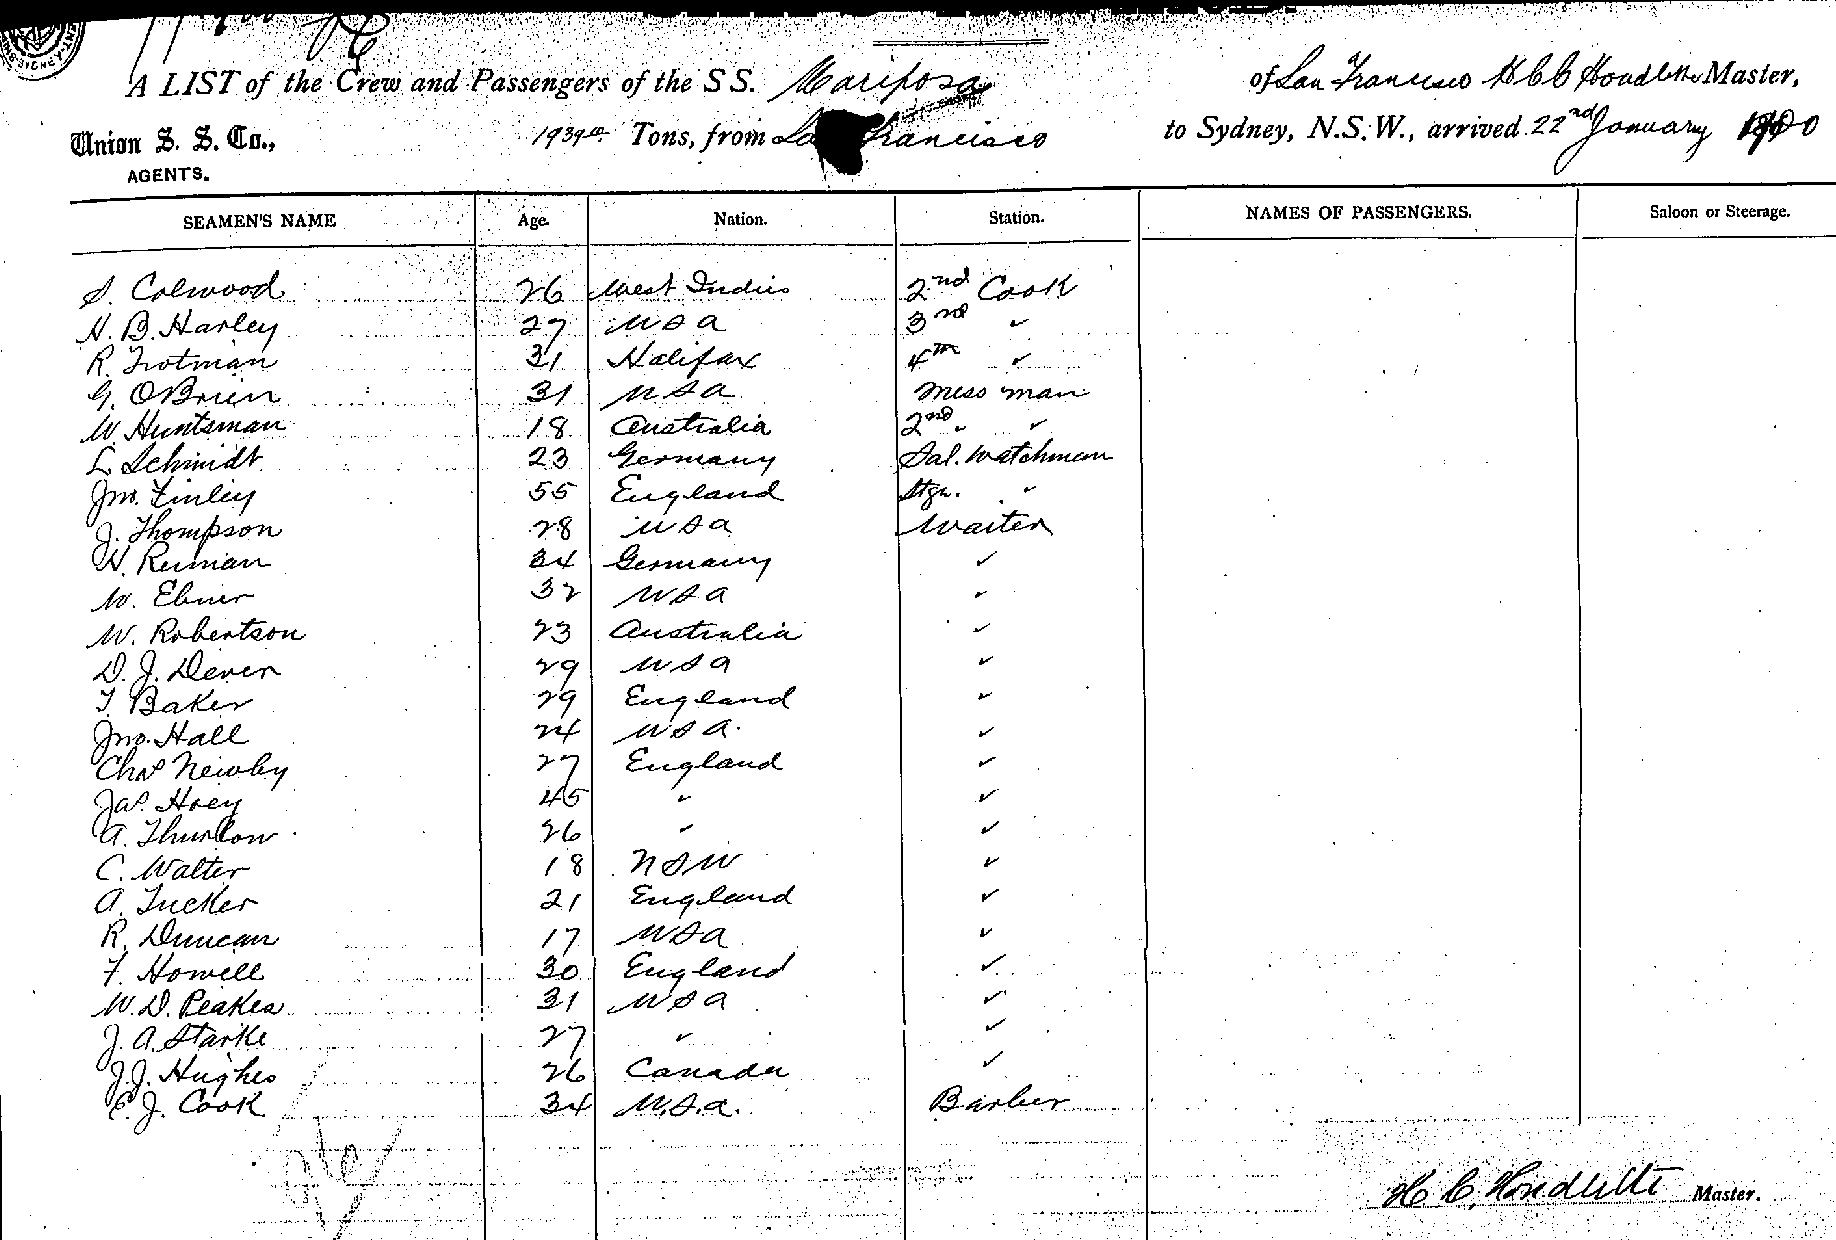 A LIST of the Crew and Passengers of the S S. Mariposa of San Francisco H C Houdlette Master,
Union S. S. Co., 1939 Tons, from San Francisco to Sydney, N.S.W., arrived 22nd January 1900
AGENTS.
SEAMEN'S NAME Age. Nation. Station. NAMES OF PASSENGERS. Saloon or Steerage.
S. Colwood 26 West Indies 2nd Cook
H. B. Harley 27 USA 3rd "
R. Trotman 31 Halifax 4th "
G. OBrien 31 USA Mess man
W. Huntsman 18 Australia 2nd " "
L. Schmidt 23 Germany Sal. Watchman
Jno. Finley 55 England Stge. "
J. Thompson 28 USA Waiter
H. Reiman 34 Germany "
W. Ebner 32 USA "
W. Robertson 23 Australia "
D. J. Dever 29 USA "
T. Baker 29 England "
Jno. Hall 24 USA. "
Chas Newby 27 England "
Jas. Hoey 45 " "
A. Thurlow 26 " "
C. Walter 18 NSW "
A. Tucker 21 England "
R. Duncan 17 USA "
F. Howell 30 England "
W. D. Peakes 31 USA "
J. A. Starke 27 " "
J. J. Hughes 26 Canada "
E. J. Cook 34 U.S.A. Barber
H C Houdlette Master.